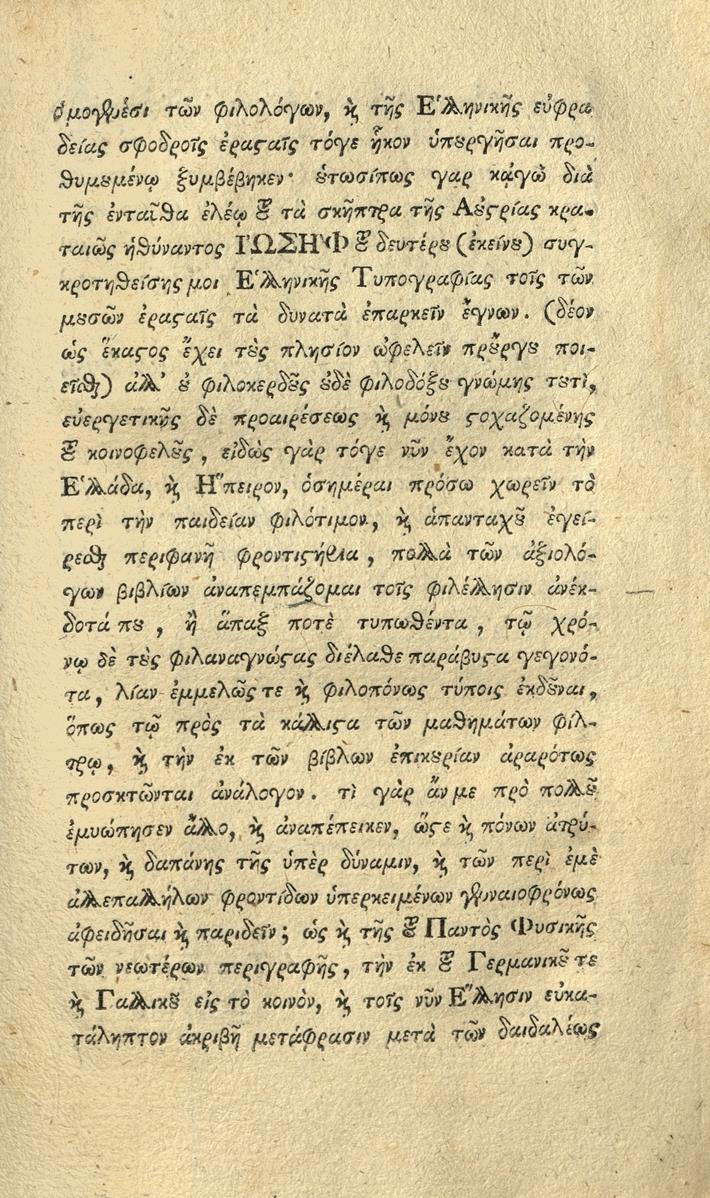 ὁμογενέσι τῶν φιλολόγων, ϗ τῆς Ἑλληνικῆς εὐφρα
δείας σφοδροῖς ἐραϛαῖς τόγε ἧκον ὑπȣργῆσαι προ-
θυμȣμένῳ ξυμβέβηκεν· ȣ̔τωσίπως γαρ κᾀγὼ διὰ
τῆς ἐνταῦθα ἐλέῳ τȣ͂ τὰ σκῆπτρα τῆς Αȣϛρίας κρα-
ταιῶς ἠθύναντος ἸΩΣΗ'Φ τȣ͂ δευτέρȣ (ἐκείνȣ) συγ-
κροτηθείσης μοι Ἑλληνικῆς Τυπογραφίας τοῖς τῶν
μȣσῶν ἐραϛαῖς τὰ δυνατὰ ἐπαρκεῖν ἔγνων. (δέον
ὡς ἕκαϛος ἔχει τȣ̀ς πλησίον ὠφελεῖν πρȣ̓́ργȣ ποι-
εῖσθαι) ἀλλ' ȣ̓ φιλοκερδȣ͂ς ȣ̓δὲ φιλοδόξȣ γνώμης τȣτὶ,
εὐεργετικῆς δὲ προαιρέσεως ϗ μόνȣ ϛοχαζομένης
τȣ͂ κοινοφελȣ͂ς, εἰδὼς γὰρ τόγε νῦν ἔχον κατὰ τὴν
Ἑλλάδα, ϗ Ἤπειρον, ὁσημέραι πρόσω χωρεῖν τὸ
περὶ τὴν παιδείαν φιλότιμον, ϗ ἁπανταχȣ͂ ἐγεί-
ρεσθαι περιφανῆ φροντιϛήρια, πολλὰ τῶν ἀξιολό-
γων βιβλίων ἀναπεμπάζομαι τοῖς φιλέλλησιν ἀνέκ-
δοτά πȣ, ἢ ἅπαξ ποτὲ τυπωθέντα, τῷ χρό-
νῳ δὲ τȣ̀ς φιλαναγνώϛας διέλαθε παράβυϛα γεγονό-
τα, λίαν ἐμμελῶς τε ϗ φιλοπόνως τύποις ἐκδȣ͂ναι,
ὅπως τῷ πρὸς τὰ κάλλιϛα τῶν μαθημάτων φίλ-
τρῳ, ϗ τὴν ἐκ τῶν βίβλων ἐπικȣρίαν ἀραρότως
προσκτῶνται ἀνάλογον. τὶ γὰρ ἄν με πρὸ πολλȣ͂
ἐμυώπησεν ἄλλο, ϗ ἀναπέπεικεν, ὥϛε ϗ πόνων ἀτρύ-
των, ϗ δαπάνης τῆς ὑπὲρ δύναμιν, ϗ τῶν περὶ ἐμὲ
ἀλλεπαλλήλων φροντίδων ὑπερκειμένων γενναιοφρόνως
ἀφειδῆσαι ϗ παριδεῖν; ὡς ϗ τῆς τȣ͂ Παντὸς Φυσικῆς
τῶν νεωτέρων περιγραφῆς, τὴν ἐκ τȣ͂ Γερμανικȣ͂ τε
ϗ Γαλλικȣ͂ εἰς τὸ κοινὸν, ϗ τοῖς νῦν Ἕλλησιν εὐκα-
τάληπτον ἀκριβῆ μετάφρασιν μετὰ τῶν δαιδαλέως